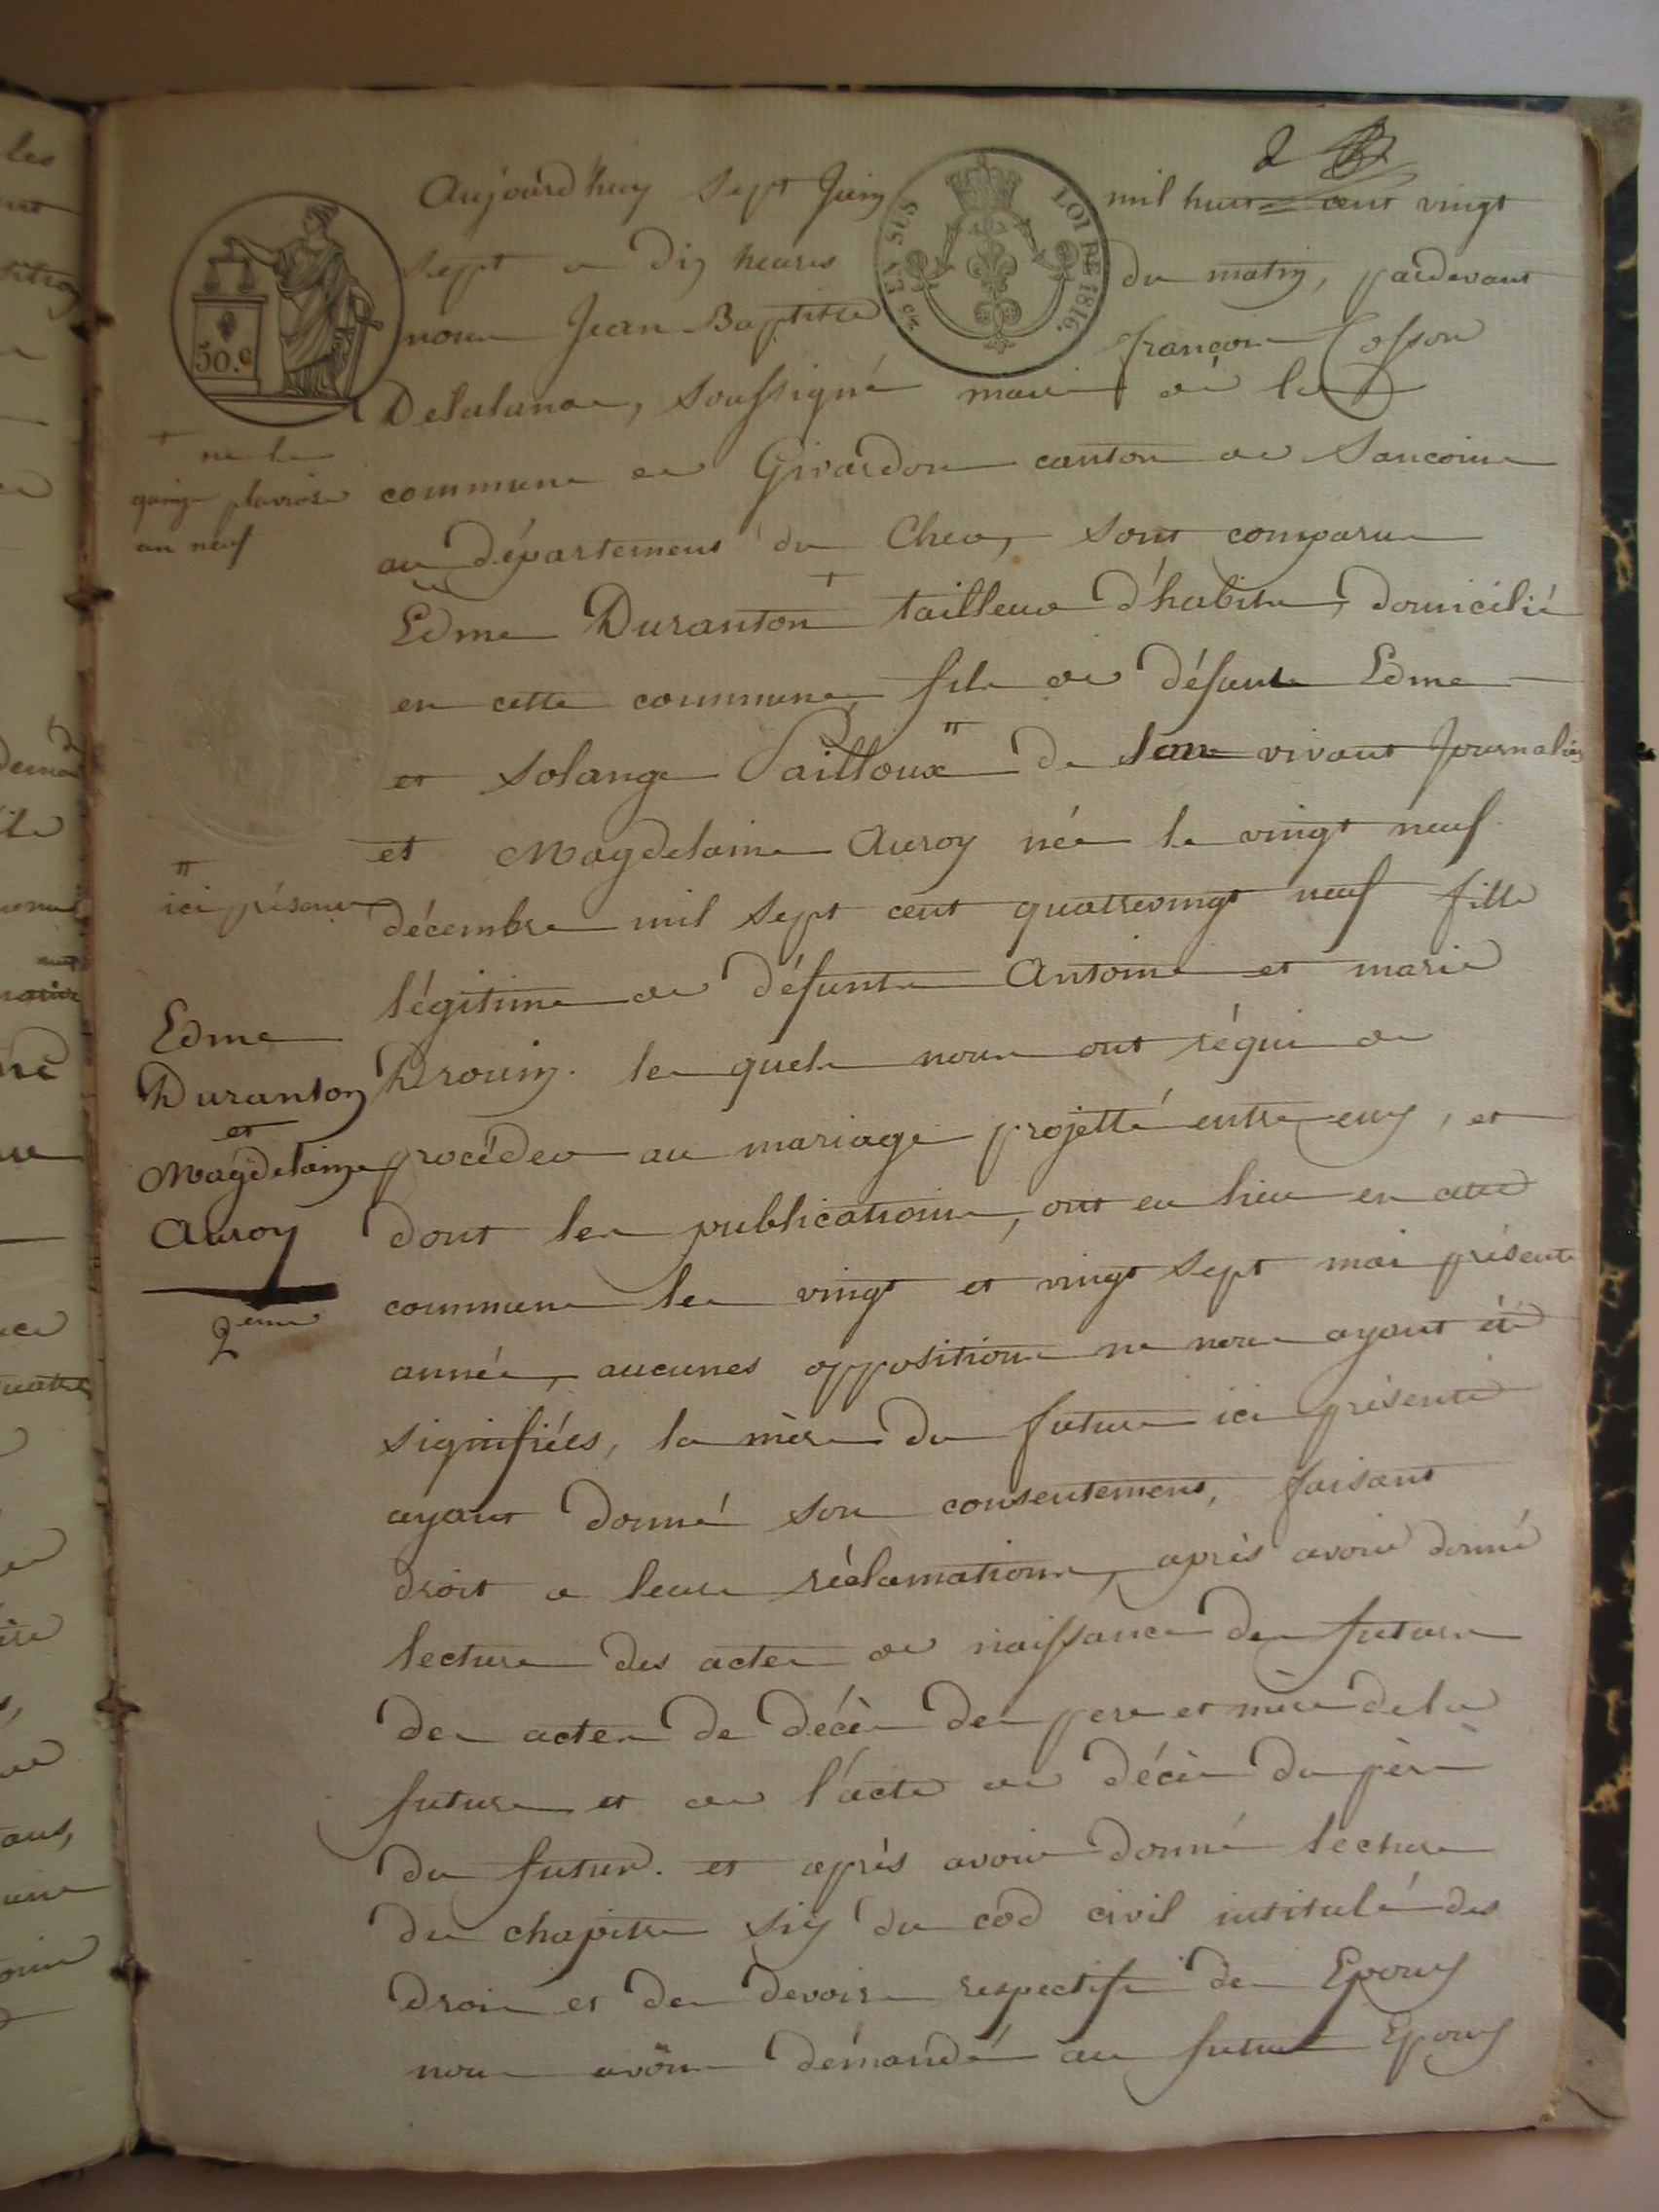 2
Aujourd'huy sept Juin mil huit cent vingt
sept a dix heures du matin, pardevant
nous Jean Baptiste françois Cosson
Delalande, soussigné maire de la
commune de Givardon canton de Sancoins
au département du Cher, sont comparus
Edme Duranton + tailleur d'habits, domicilié
en cette commune, fils de défunt Edme
et solange Pailloux " de son vivant Journalier
et Magdelaine Auroy née le vingt neuf
décembre mil sept cent quatrevingt neuf fille
légitime de défunts Antoine et marie
Drouin. les quels nous ont réquis de
procéder au mariage projetté entre eux, et
dont les publications, ont eu lieu en cette
commune les vingt et vingt sept mai présente
année, aucunes oppositions ne nous ayant été
signifiées, la mère du futur ici présente
ayant donné son consentement, faisant
droit a leurs réclamations, après avoir donné
lecture des actes de naissance des futurs
des actes de décès des pere et mère de la
future et de l'acte de décès du père
du futur. et après avoir donné lecture
du chapitre six du cod civil intitulé des
droits et des devoirs respectifs des Epoux
nous avons démandé au futur Epoux
+ né le
quinze pluviose
an neuf
" ici présente
Edme
Duranton
et
Magdelaine
Auroy
2eme
50.c
LOI DE 1816.